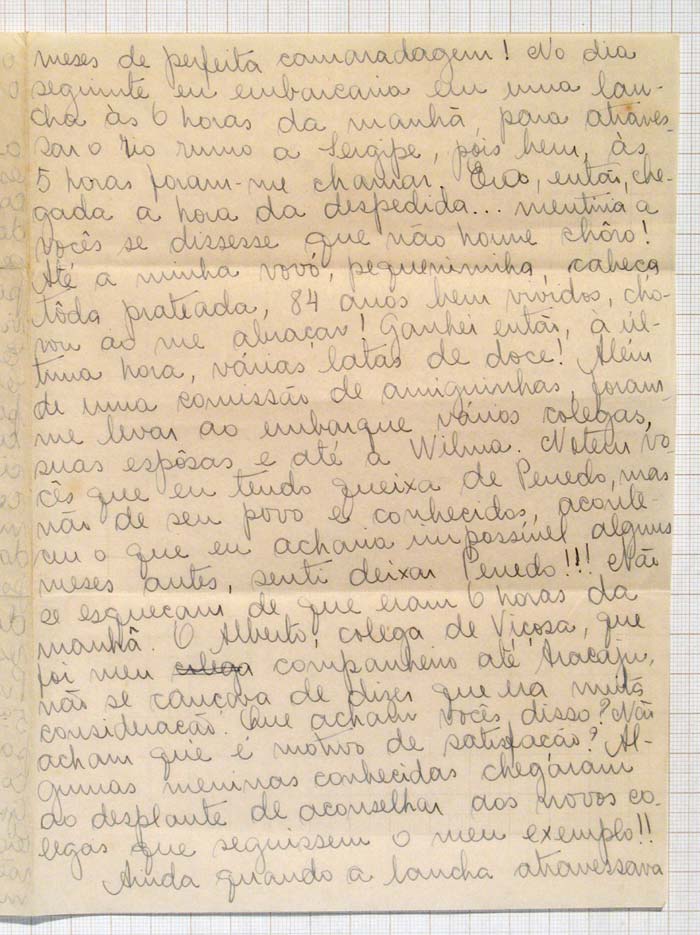 meses de perfeita camaradagem! No dia
seguinte eu embarcaria em uma lan-
cha às 6 horas da manhã para atraves-
sar o rio rumo a Sergipe, pois bem, às
5 horas foram-me chamar. Era, então, che-
gada a hora da despedida... mentiria a
vocês se dissesse que não houve chôro!
Até a minha vovó, pequenininha, cabeça
tôda prateada, 84 anos bem vividos, cho-
rou ao me abraçar! Ganhei então, à úl-
tima hora, várias latas de doce! Além
de uma comissão de amiguinhas, foram-
me levar ao embarque vários colegas,
suas espôsas e até a Wilma. Notem vo-
cês que eu tendo queixa de Penedo, mas
não de seu povo e conhecidos, aconte-
ceu o que eu achava impossível alguns
meses antes, senti deixar Penedo!!! Não
se esqueçam de que eram 6 horas da
manhã. O Alberto, colega de Viçosa, que
foi meu colega companheiro até Aracaju,
não se cansava de dizer que era muita
consideração. Que acham vocês disso? Não
acham que é motivo de satisfação? Al-
gumas meninas conhecidas chegaram
ao desplante de aconselhar aos novos co-
legas que seguissem o meu exemplo!!
Ainda quando a lancha atravessava